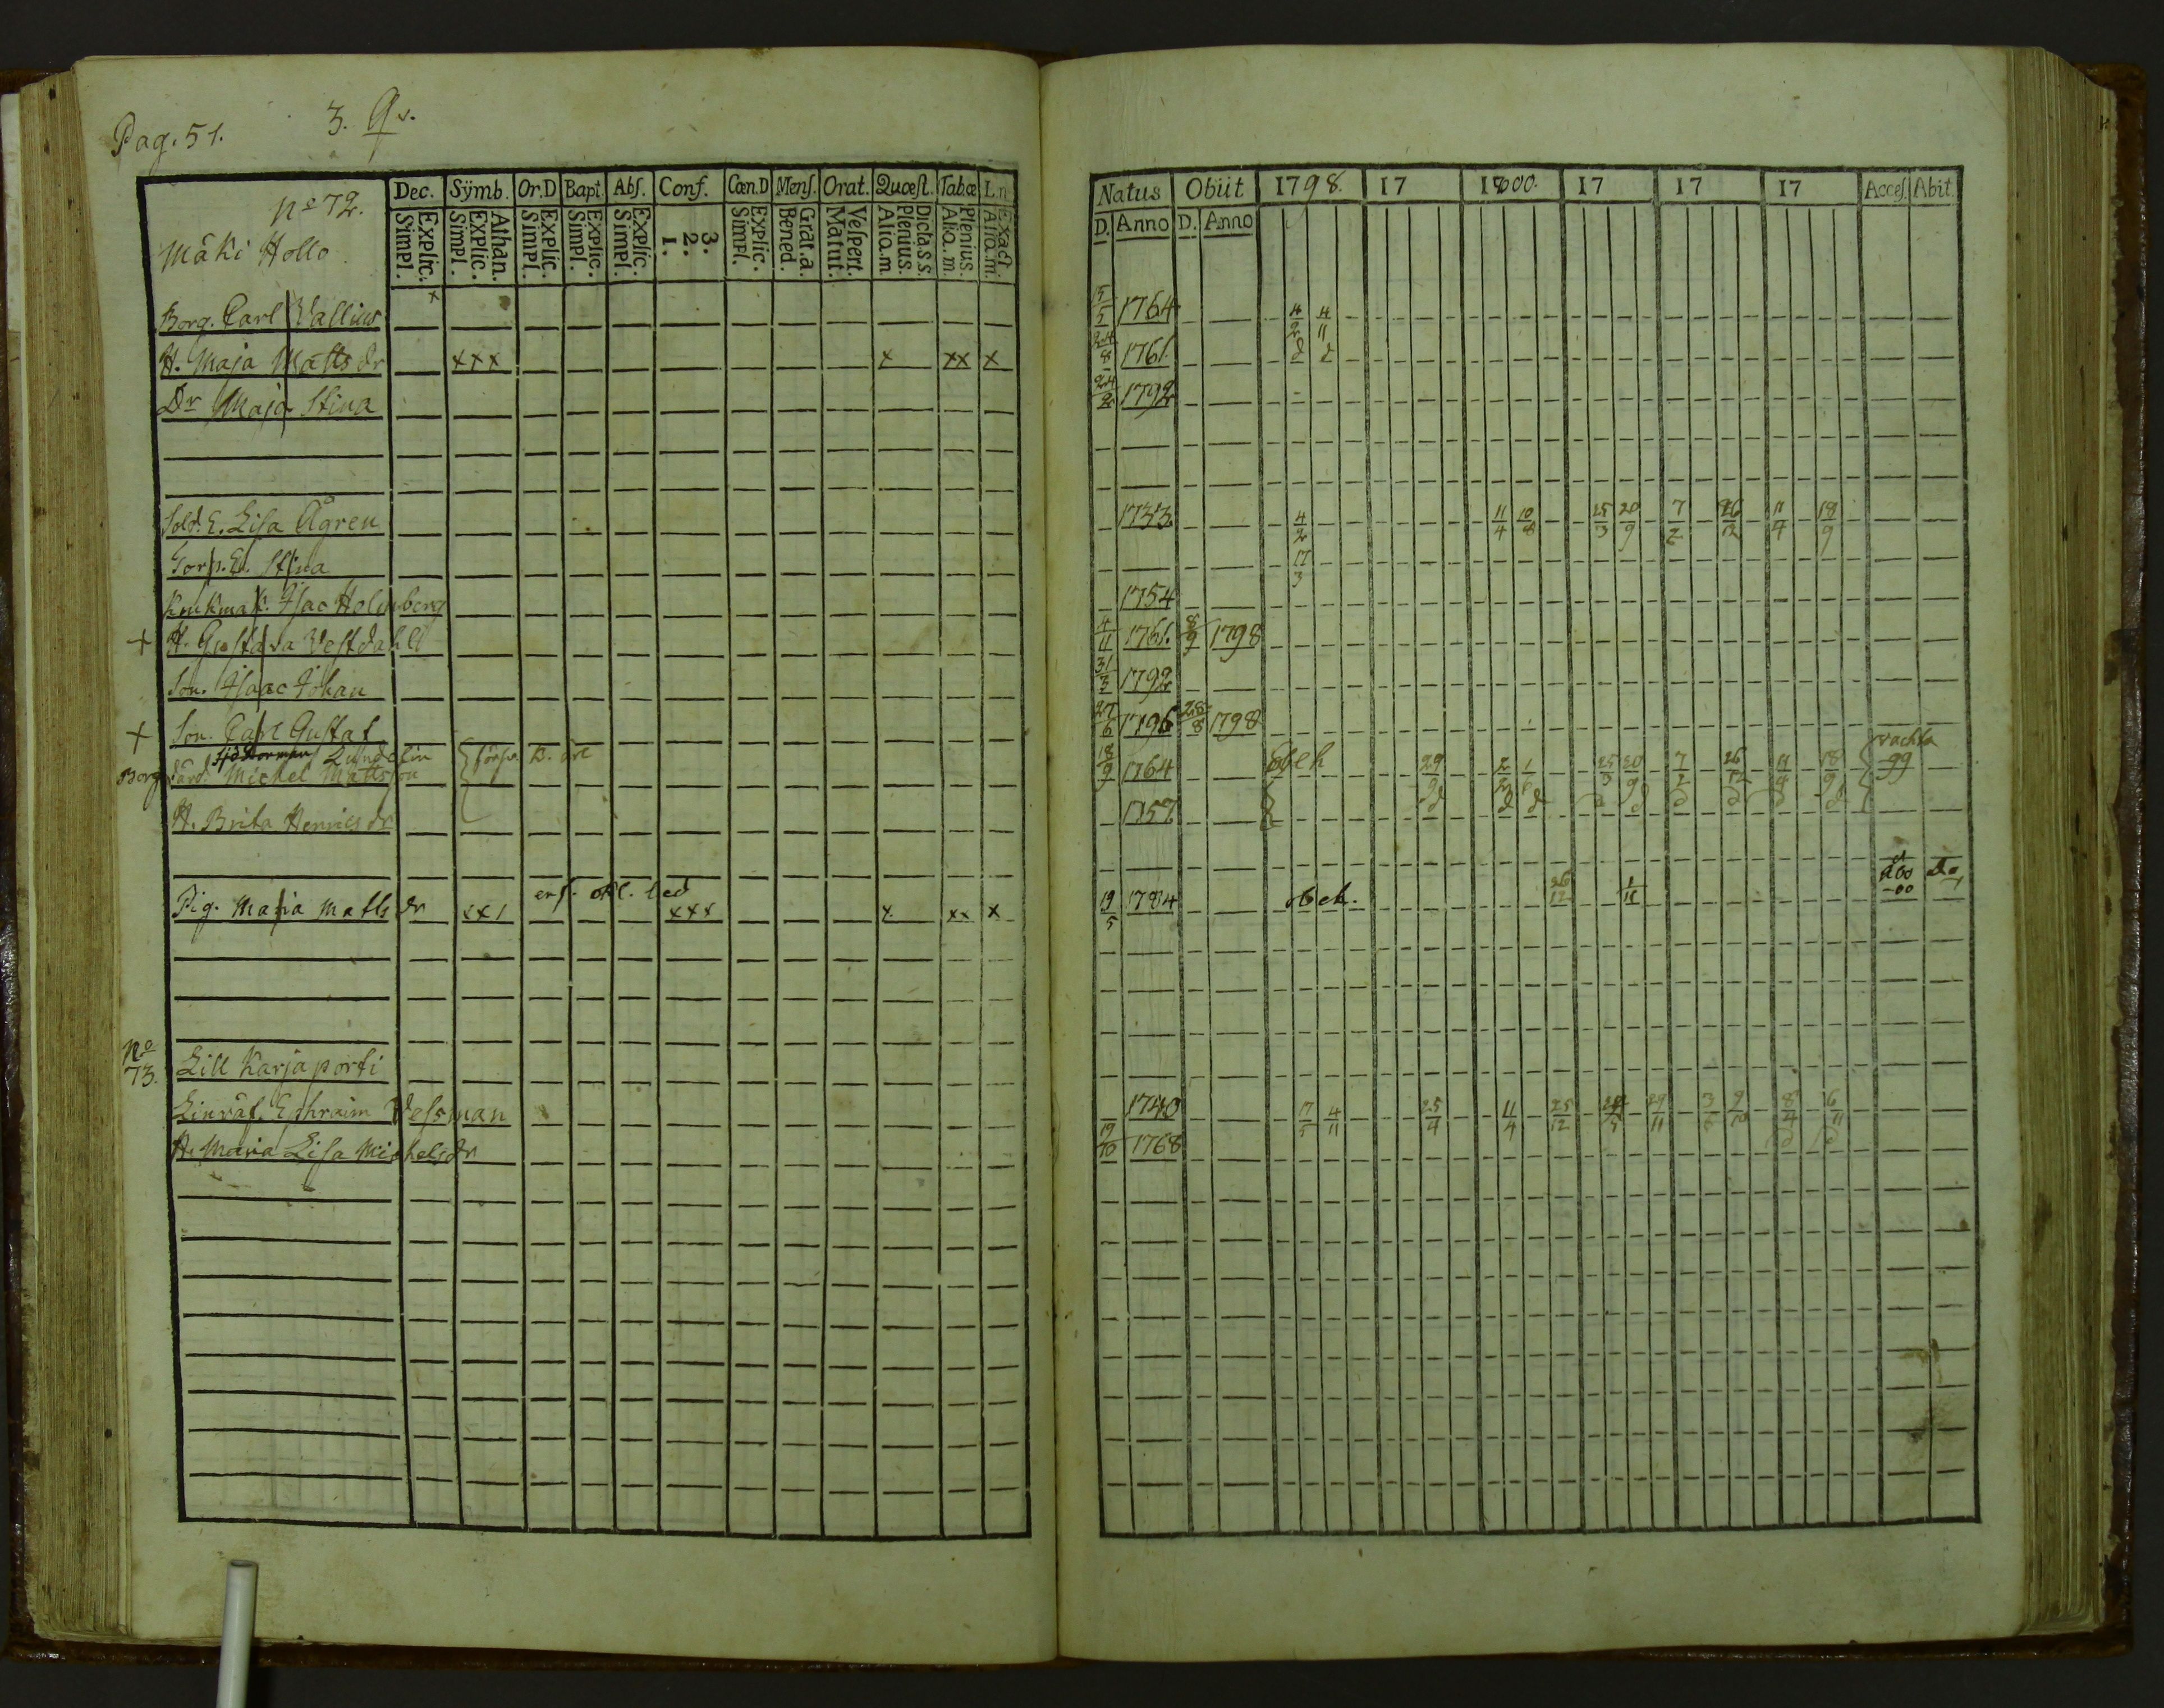 Pag. 51. 3. Qv.
Dec. Sÿmb. Or.D Bapt. Abſ. Conf. Cœn.D Menſ. Orat. Quœſt. Tab.œ L.n
Explic. Simpl. Athan. Explic. Simpl. Explic. Simpl. Explic. Simpl. Explic. Simpl. 3. 2. 1. Explic. Simpl. Grat.a. Bened. Veſpert. Matut. Dicla.s.s. Plenius. Alia.m. Plenius. Alia.m. Exact. Alia.m.
No 72.
Mäki Hollo
Borg. Carl Vallius x
H. Maja Matts dr xxx x xx x
Dr Maja Stina
Sold. E. Liſa Ågren
Corp. E. Stina
Iſac Holmberg
+ H. Gustava Vestdahl
Son. Iſaac Johan
+ Son. Carl Gustaf
Borg. Michel Mattsson
H. Brita Henrics dr
Pig. Maria Matts dr xx1 xxx x xx x
No 73. Lill Karjaporti
Ephraim Vessman
H. Maria Liſa Michelsdr
Natus Obiit 1798. 17 1800. 17 17 17 Acceſ. Abit.
D. Anno D. Anno
15/5 1764 4/2 4/11
24/8 1761. d d
24/2 1792
1733 4/2 11/4 10/8 15/3 20/9 7/2 26/12 11/4 18/9
17/3
1754
4/11 1761. 8/9 1798
31/3 1792
27/6 1796 28/8 1798
18/9 1764 obek 29/9 2/2 1/6 25/3 20/9 7/2 26/12 11/4 18/9 vachta 99
1757
19/5 1784 obek. 26/12 1/11
1740 17/5 4/11 25/4 11/4 25/12 29/11 3/6 9/10 8/4 6/11
19/10 1768 d d